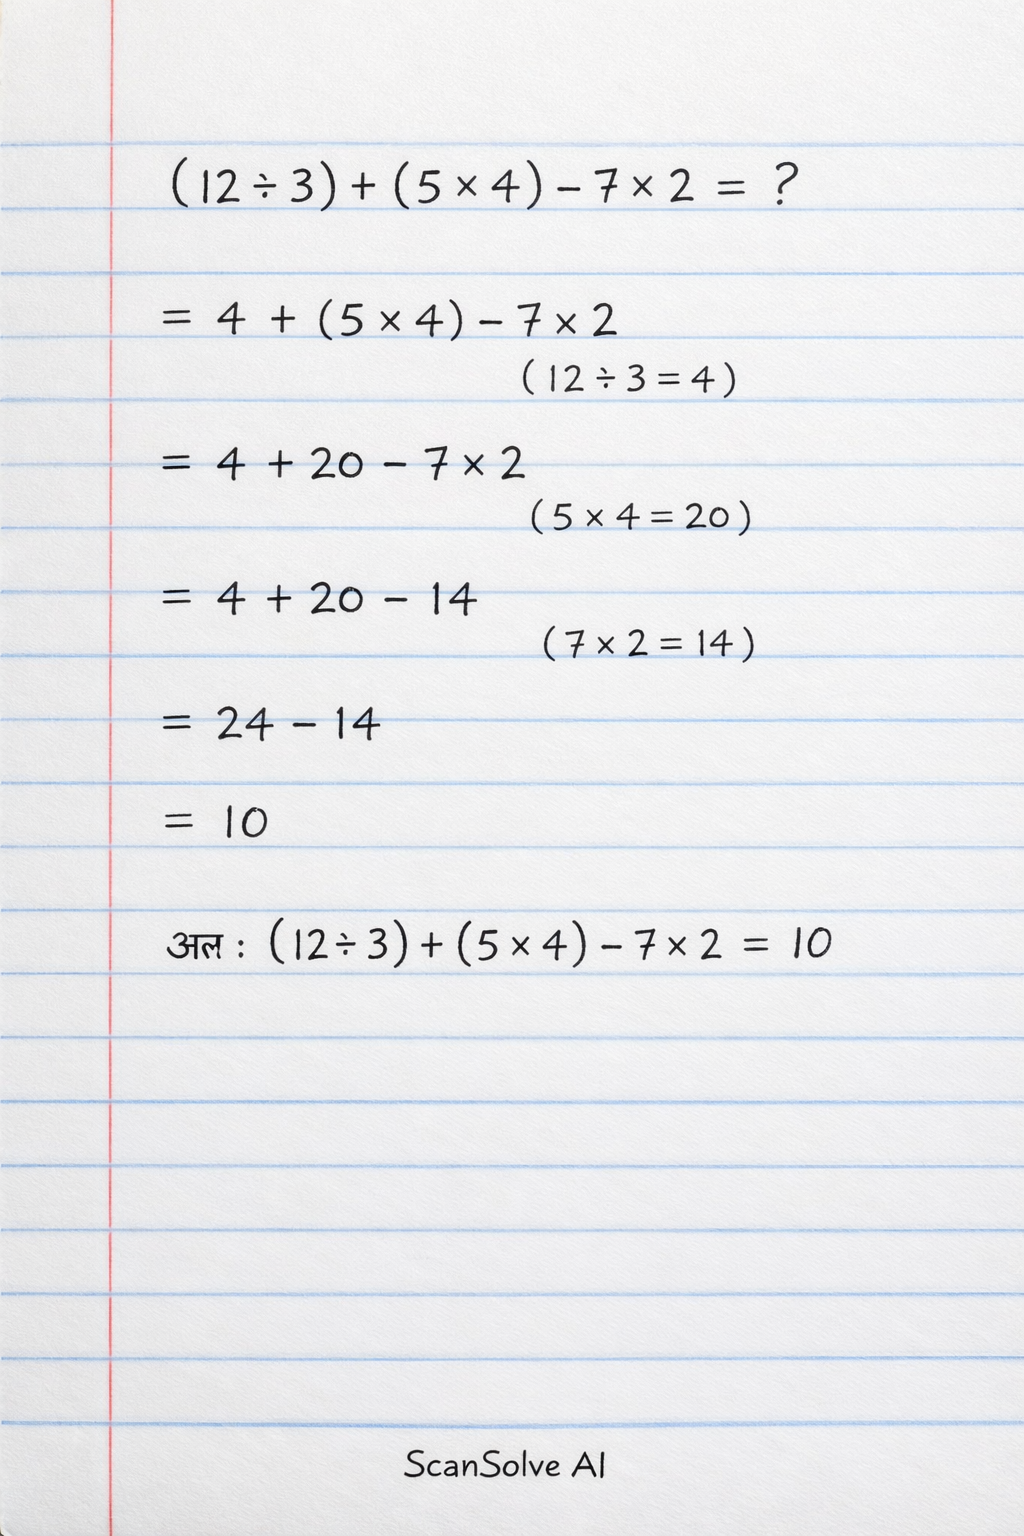 (12 ÷ 3) + (5 × 4) − 7 × 2 = ?
= 4 + (5 × 4) − 7 × 2
(12 ÷ 3 = 4)
= 4 + 20 − 7 × 2
(5 × 4 = 20)
= 4 + 20 − 14
(7 × 2 = 14)
= 24 − 14
= 10
अल : (12 ÷ 3) + (5 × 4) − 7 × 2 = 10
ScanSolve AI